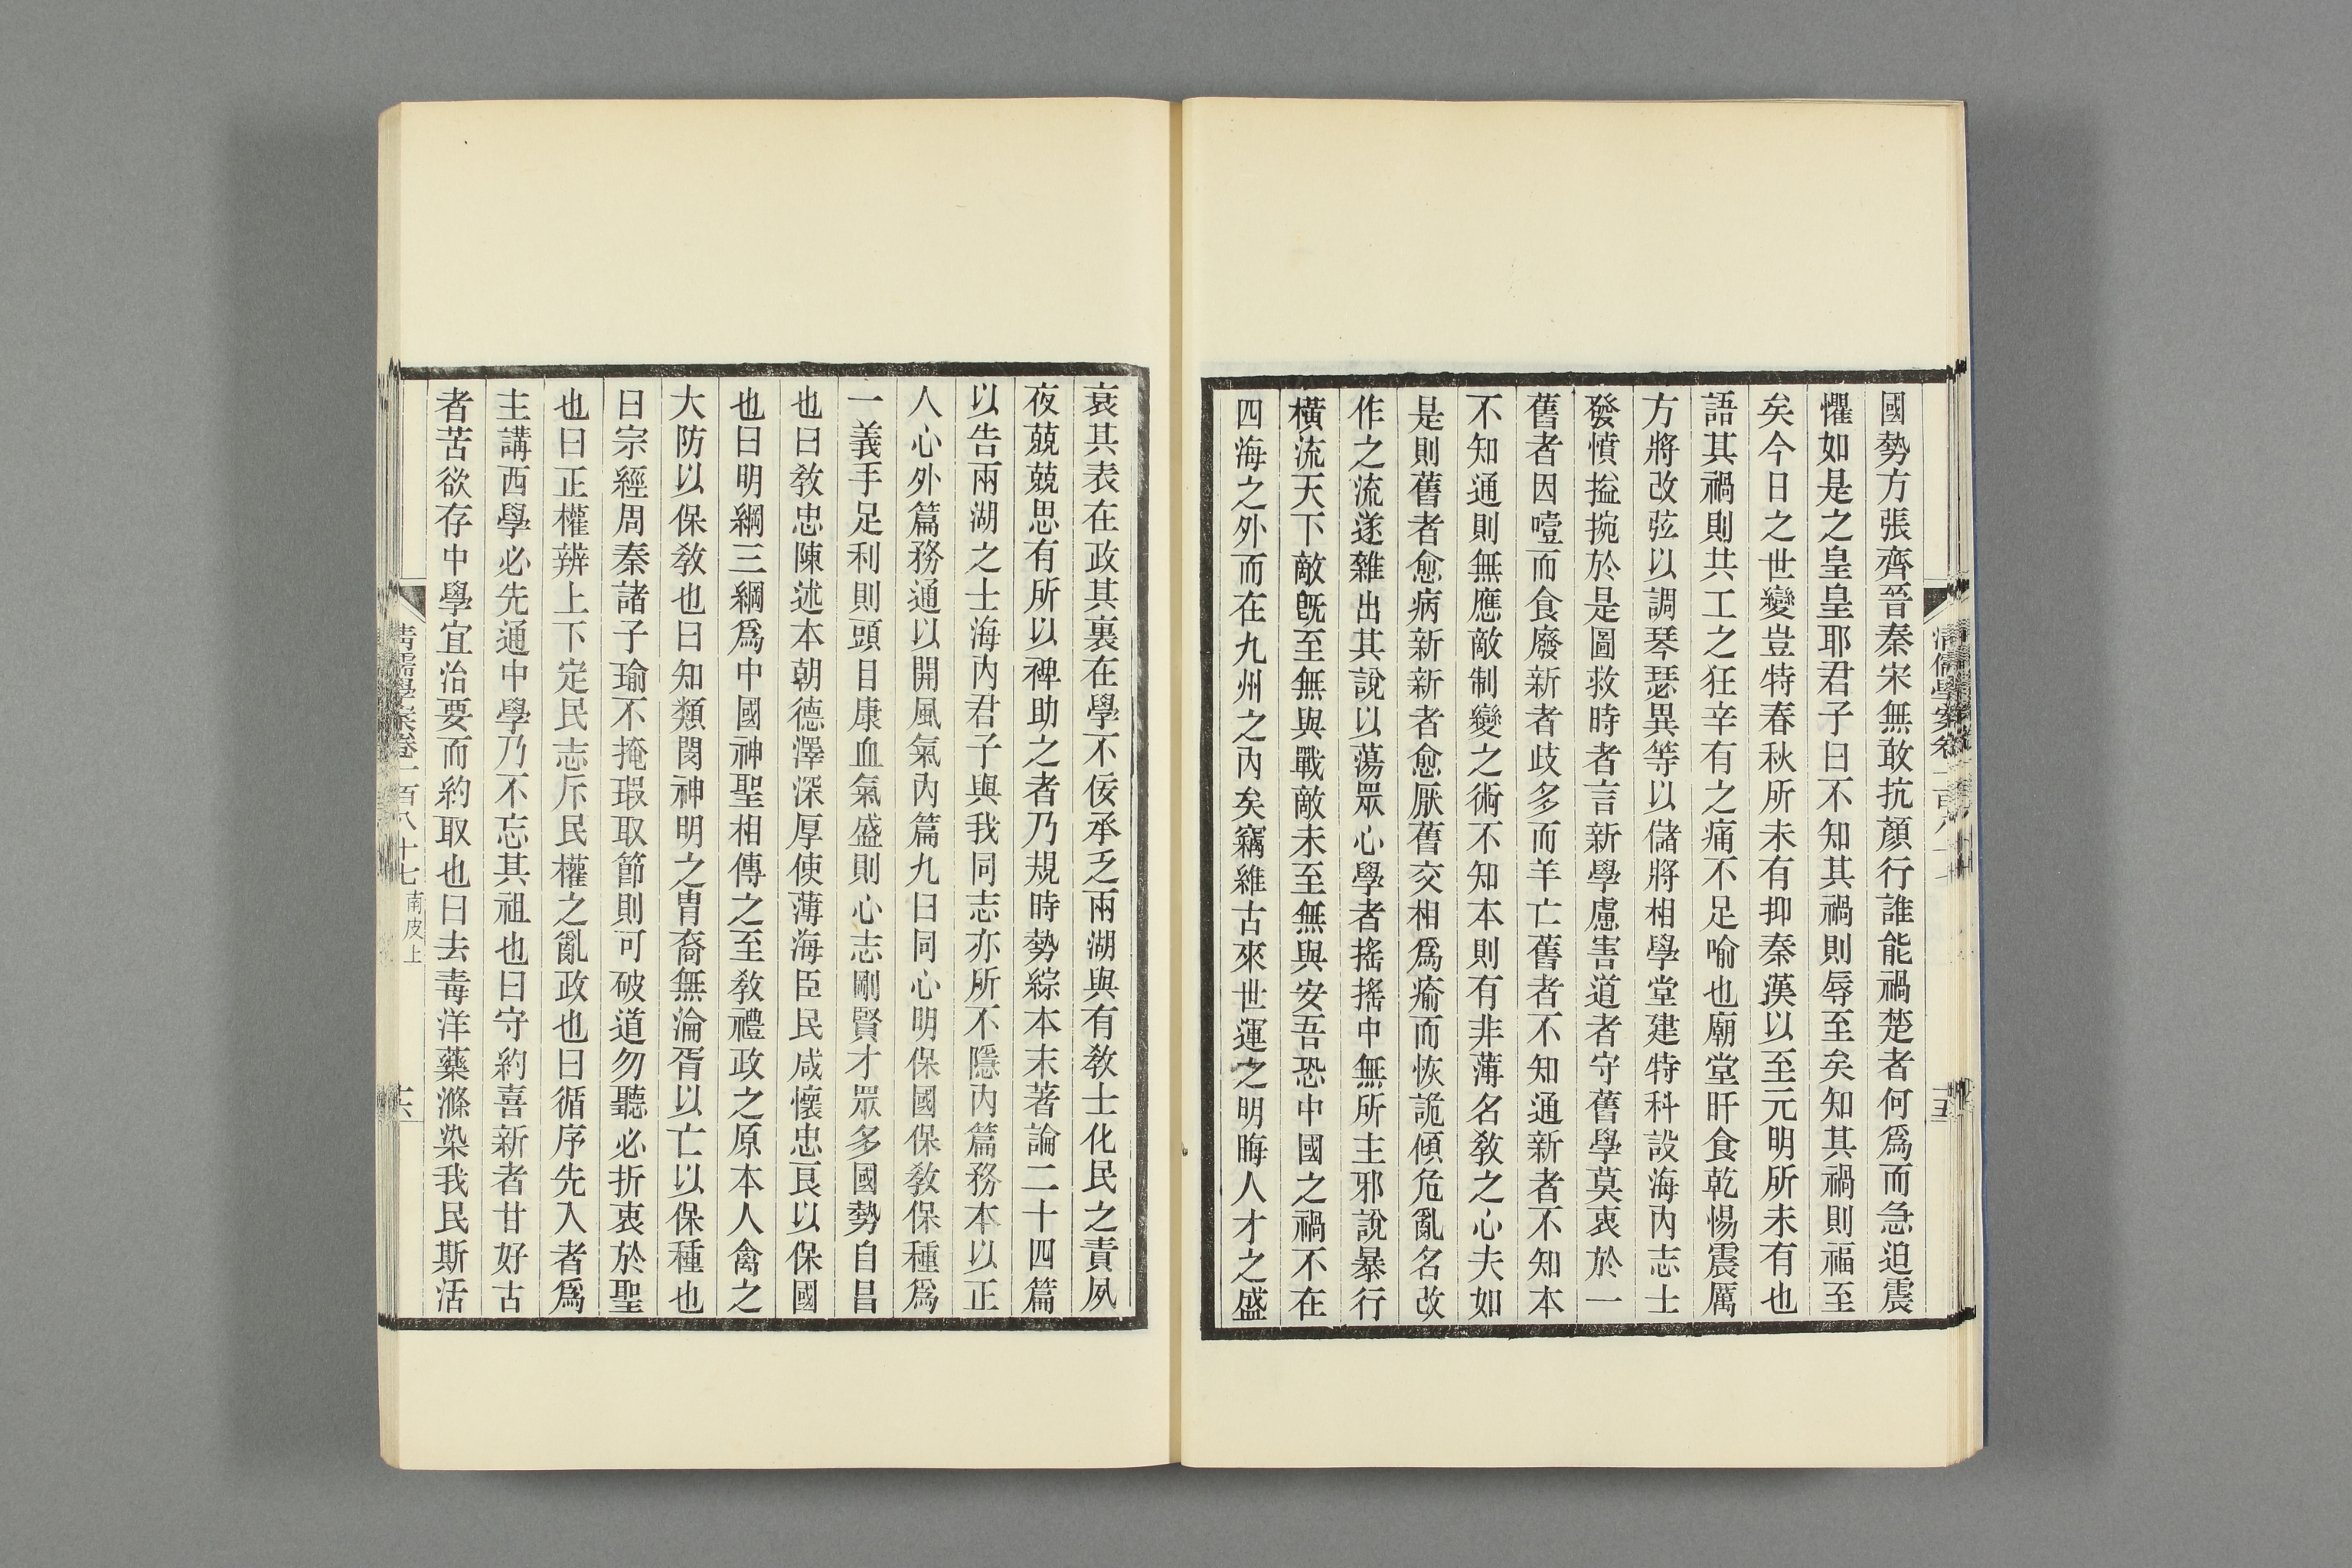 國勢方張齊晉秦宋無敢抗顏行誰能禍楚者何爲而急迫震
懼如是之皇皇耶君子曰不知其禍則辱至矣知其禍則福至
矣今日之世變豈特春秋所未有抑秦漢以至元明所未有也
語其禍則共工之狂辛有之痛不足喻也廟堂旰食乾惕震厲
方將改弦以調琴瑟異等以儲將相學堂建特科設海內志士
發憤搤捥於是圖救時者言新學慮害道者守舊學莫衷於一
舊者因噎而食廢新者歧多而羊亡舊者不知通新者不知本
不知通則無應敵制變之術不知本則有非薄名敎之心夫如
是則舊者愈病新新者愈厭舊交相爲瘉而恢詭傾危亂名改
作之流遂雜出其說以蕩眾心學者搖搖中無所主邪說暴行
橫流天下敵旣至無與戰敵未至無與安吾恐中國之禍不在
四海之外而在九州之內矣竊維古來世運之明晦人才之盛
衰其表在政其裏在學不佞承乏兩湖與有敎士化民之責夙
夜兢兢思有所以裨助之者乃規時勢綜本末著論二十四篇
以告兩湖之士海內君子與我同志亦所不隱內篇務本以正
人心外篇務通以開風氣內篇九曰同心明保國保敎保種爲
一義手足利則頭目康血氣盛則心志剛賢才眾多國勢自昌
也曰敎忠陳述本朝德澤深厚使薄海臣民咸懷忠良以保國
也曰明綱三綱爲中國神聖相傳之至敎禮政之原本人禽之
大防以保敎也曰知類閔神明之胄裔無淪胥以亡以保種也
曰宗經周秦諸子瑜不掩瑕取節則可破道勿聽必折衷於聖
也曰正權辨上下定民志斥民權之亂政也曰循序先入者爲
主講西學必先通中學乃不忘其祖也曰守約喜新者甘好古
者苦欲存中學宜治要而約取也曰去毒洋藥滌染我民斯活
清儒學案卷一百八十七 南皮上